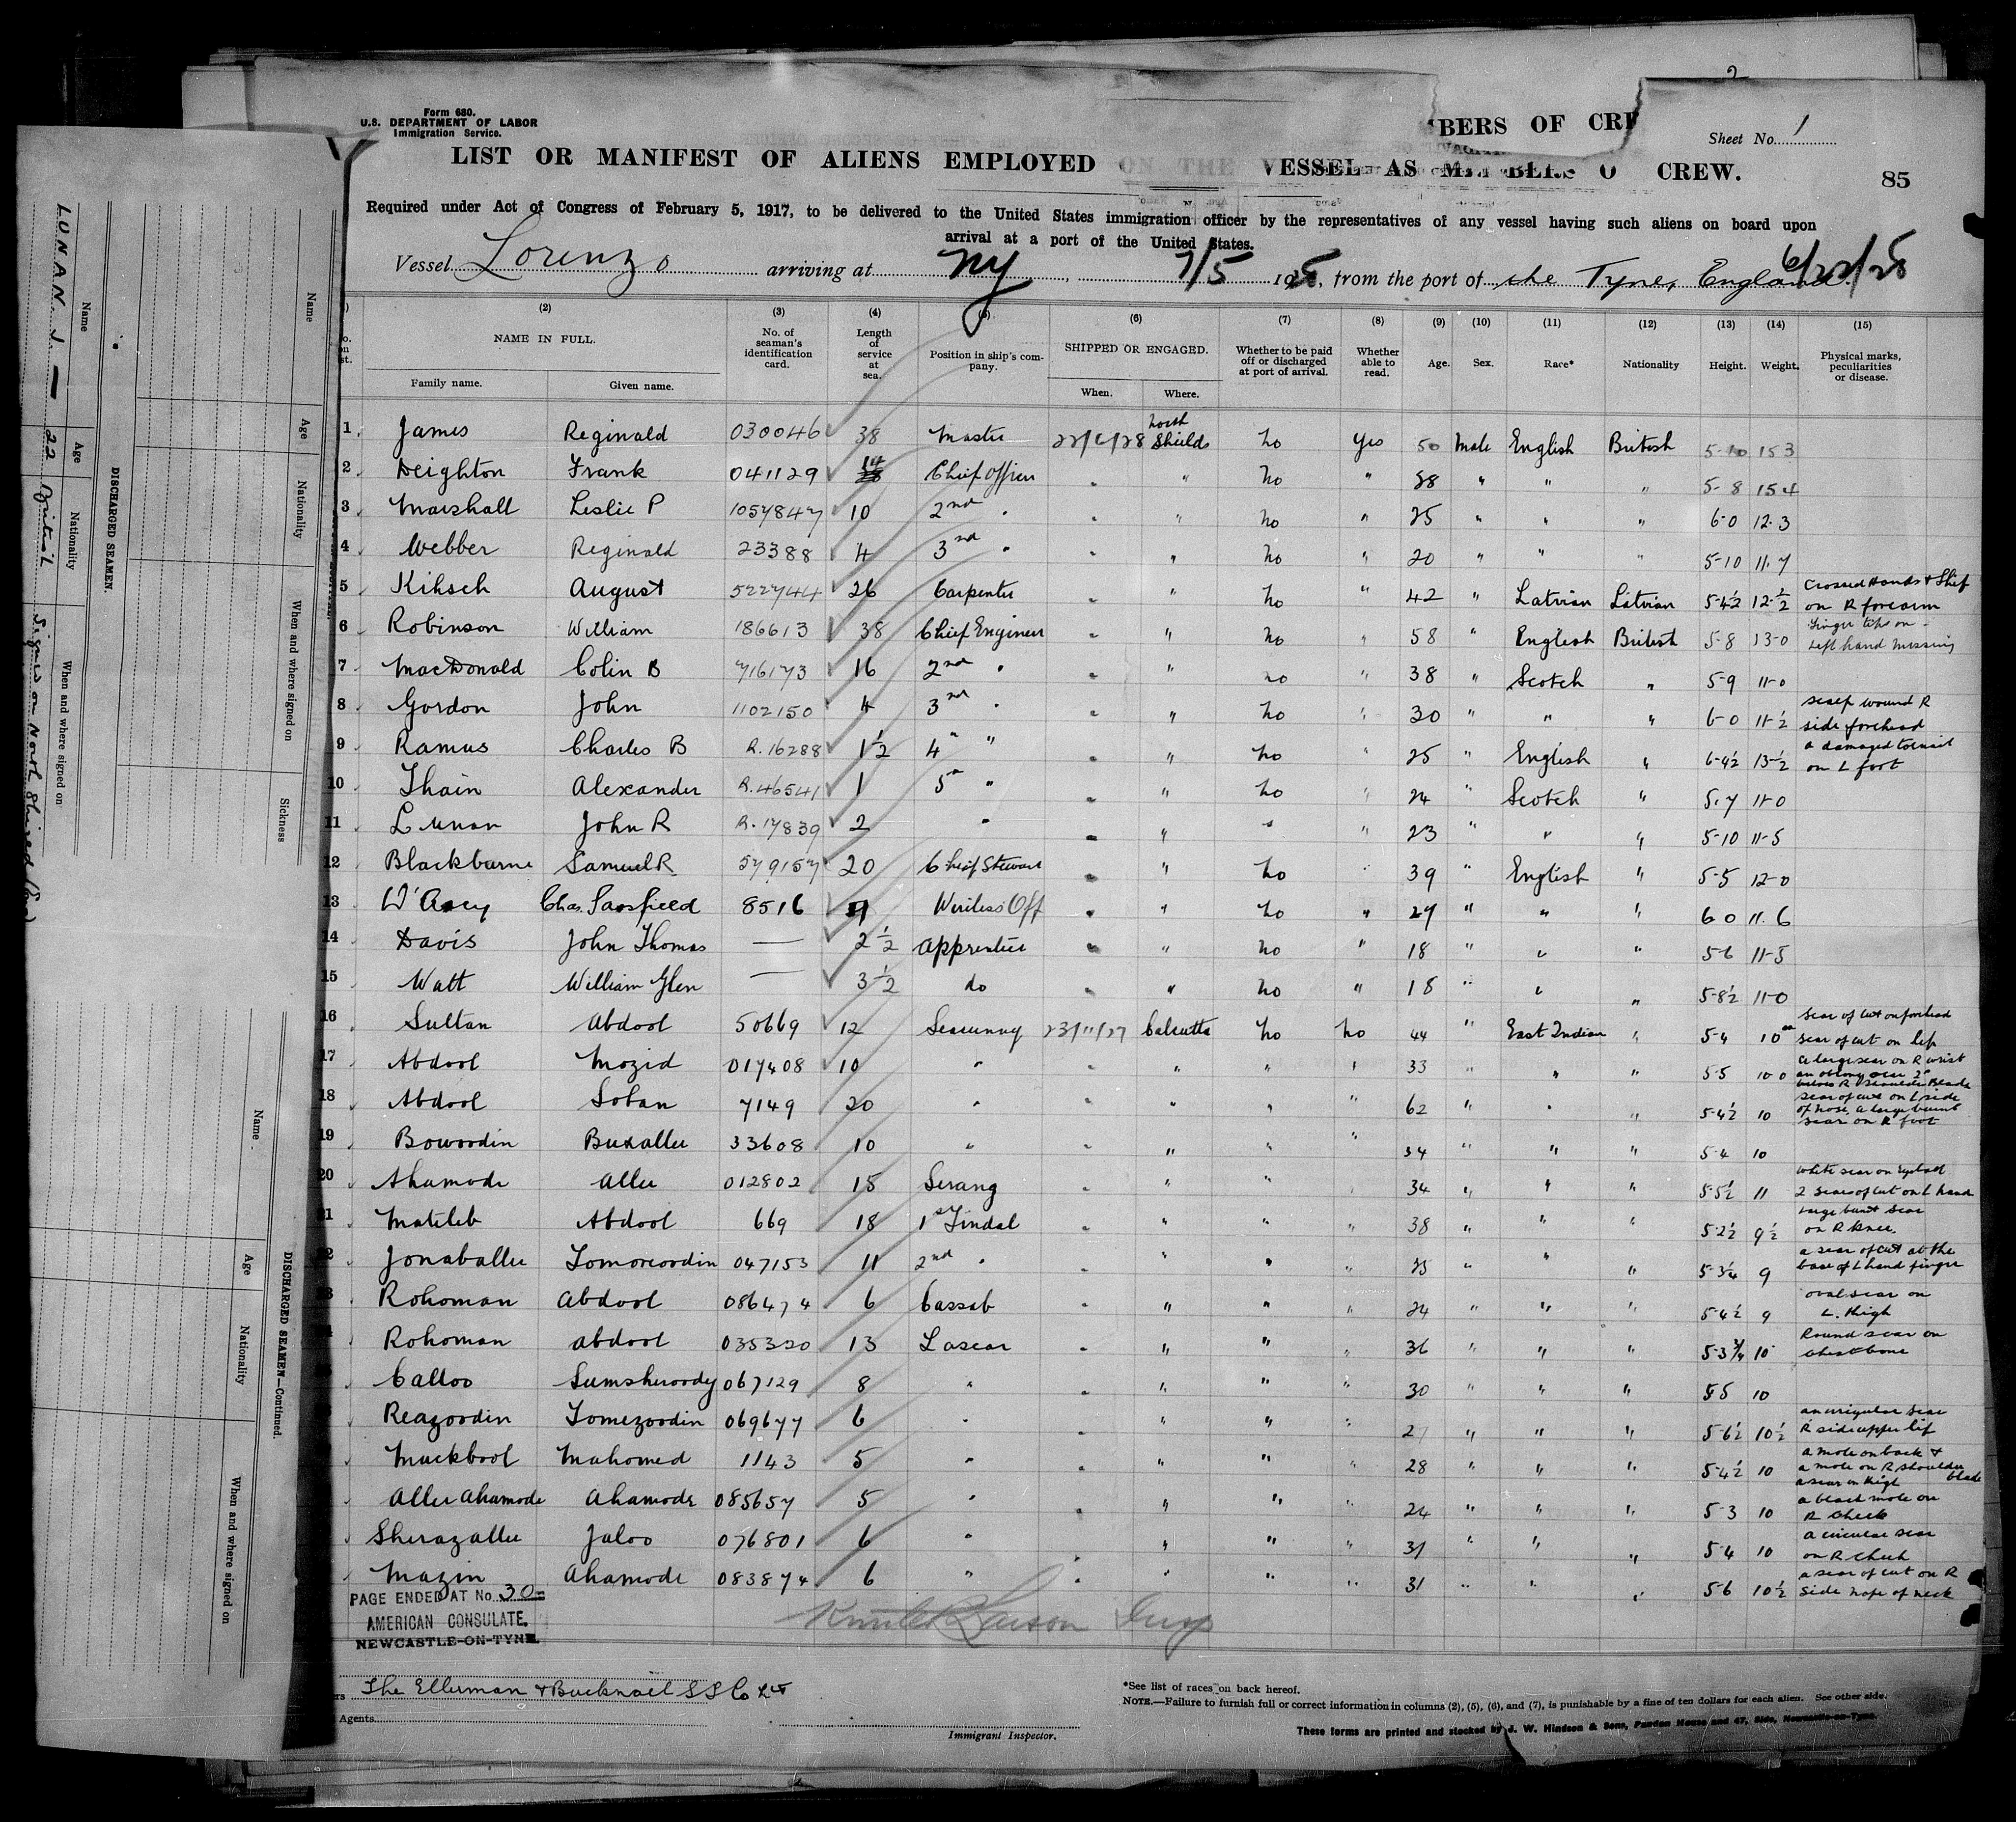 Form 680.
U.S. DEPARTMENT OF LABOR
Immigration Service.
BERS OF CRE
Sheet No. 1
LIST OR MANIFEST OF ALIENS EMPLOYED ON THE VESSEL AS MEMBERS O CREW.
85
Required under Act of Congress of February 5, 1917, to be delivered to the United States immigration officer by the representatives of any vessel having such aliens on board upon
arrival at a port of the United States.
Vessel Lorenzo arriving at NY, 7/5 1928, from the port of the Tyne, England 6/22/28
(2) (3) (4) (5) (6) (7) (8) (9) (10) (11) (12) (13) (14) (15)
NAME IN FULL. No. of seaman's identification card. Length of service at sea. Position in ship's company. SHIPPED OR ENGAGED. Whether to be paid off or discharged at port of arrival. Whether able to read. Age. Sex. Race* Nationality Height. Weight. Physical marks, peculiarities or disease.
Family name. Given name. When. Where.
1 James Reginald 030046 38 Master 22/6/28 North Shields No Yes 50 Male English British 5-10 153
2 Deighton Frank 041129 14 Chief Officer " " No " 38 " " " 5-8 154
3 Marshall Leslie P 1057847 10 2nd " " " No " 25 " " " 6-0 12.3
4 Webber Reginald 23388 4 3rd " " " No " 20 " " " 5-10 11.7
5 Kihsch August 522744 26 Carpenter " " No " 42 " Latvian Latvian 5-4½ 12-½ Crossed Hands & Ship on R forearm
6 Robinson William 186613 38 Chief Engineer " " No " 58 " English British 5-8 13-0 Finger tips on left hand missing
7 MacDonald Colin B 716173 16 2nd " " " No " 38 " Scotch " 5-9 11-0
8 Gordon John 1102150 4 3rd " " " No " 30 " " " 6-0 11-½ scalp wound R side forehead
9 Ramus Charles B R.16288 1½ 4" " " " No " 25 " English " 6-4½ 13-½ a damaged toenail on L foot
10 Thain Alexander R.46541 1 5" " " " No " 24 " Scotch " 5.7 11-0
11 Lunan John R R.17839 2 " " " " " 23 " " " 5-10 11-5
12 Blackburne Samuel R 579157 20 Chief Steward " " No " 39 " English " 5-5 12-0
13 Chas. Sarsfield 8516 Wireless Off " " No " 27 " " " 6 0 11.6
14 Davis John Thomas — 2½ Apprentice " " No " 18 " " " 5-6 11-5
15 Watt William Glen — 3½ do " " No " 18 " " " 5-8½ 11-0
16 Sultan Abdool 50669 12 Seacunny 23/11/27 Calcutta No No 44 " East Indian " 5-4 10 scar of cut on forehead scar of cut on lip
17 Abdool Mozid 017408 10 " " " " " 33 " " " 5-5 10 0 a large scar on R wrist an oblong scar 2" below R shoulder Blade
18 Abdool Soban 7149 20 " " " " " 62 " " " 5-4½ 10 scar of cut on L side of nose, a large burnt scar on R foot
19 Bowoodin Buxallee 33608 10 " " " " " 34 " " " 5-4 10
20 Ahamode Allee 012802 15 Serang " " " " 34 " " " 5-5½ 11 white scar on Eyeball 2 scars of cut on L hand
21 Matileb Abdool 669 18 1st Tindal " " " " 38 " " " 5-2½ 9½ Large burnt scar on R knee
22 Jonaballee Tomoroodin 047153 11 2nd " " " " " 35 " " " 5-3¼ 9 a scar of cut at the base of L hand finger
23 Rohoman Abdool 086474 6 Cassab " " " " 24 " " " 5-4½ 9 oval scar on L. thigh
24 Rohoman abdool 035320 13 Lascar " " " " 36 " " " 5-3¾ 10 Round scar on chestbone
Calloo Sumsheroody 067129 8 " " " " " 30 " " " 5-5 10
Reazoodin Tomezoodin 069677 6 " " " " " 27 " " " 5-6½ 10½ an irregular scar R side upper lip
Muckbool Mahomed 1143 5 " " " " " 28 " " " 5-4½ 10 a mole on back & a mole on R shoulder blade a scar on thigh
Allee Ahamode Ahamode 085657 5 " " " " " 24 " " " 5-3 10 a black mole on R cheek
Sherazallee Jaloo 076801 6 " " " " " 31 " " " 5-4 10 a circular scar on R cheek
Mazin Ahamode 083874 6 " " " " " 31 " " " 5-6 10½ a scar of cut on R side nape of neck
PAGE ENDED AT No. 30
AMERICAN CONSULATE.
NEWCASTLE-ON-TYNE.
Larson Insp
The Ellerman & Bucknall SS Co Ltd
Agents
Immigrant Inspector.
*See list of races on back hereof.
NOTE.—Failure to furnish full or correct information in columns (2), (5), (6), and (7), is punishable by a fine of ten dollars for each alien. See other side.
These forms are printed and stocked by J. W. Hindson & Sons, Pandon House and 47, Side, Newcastle-on-Tyne.
DISCHARGED SEAMEN.
Name Age Nationality When and where signed on Sickness
LUNAN. J — 22 British Signed on North Shields
DISCHARGED SEAMEN—Continued.
Name Age Nationality When and where signed on